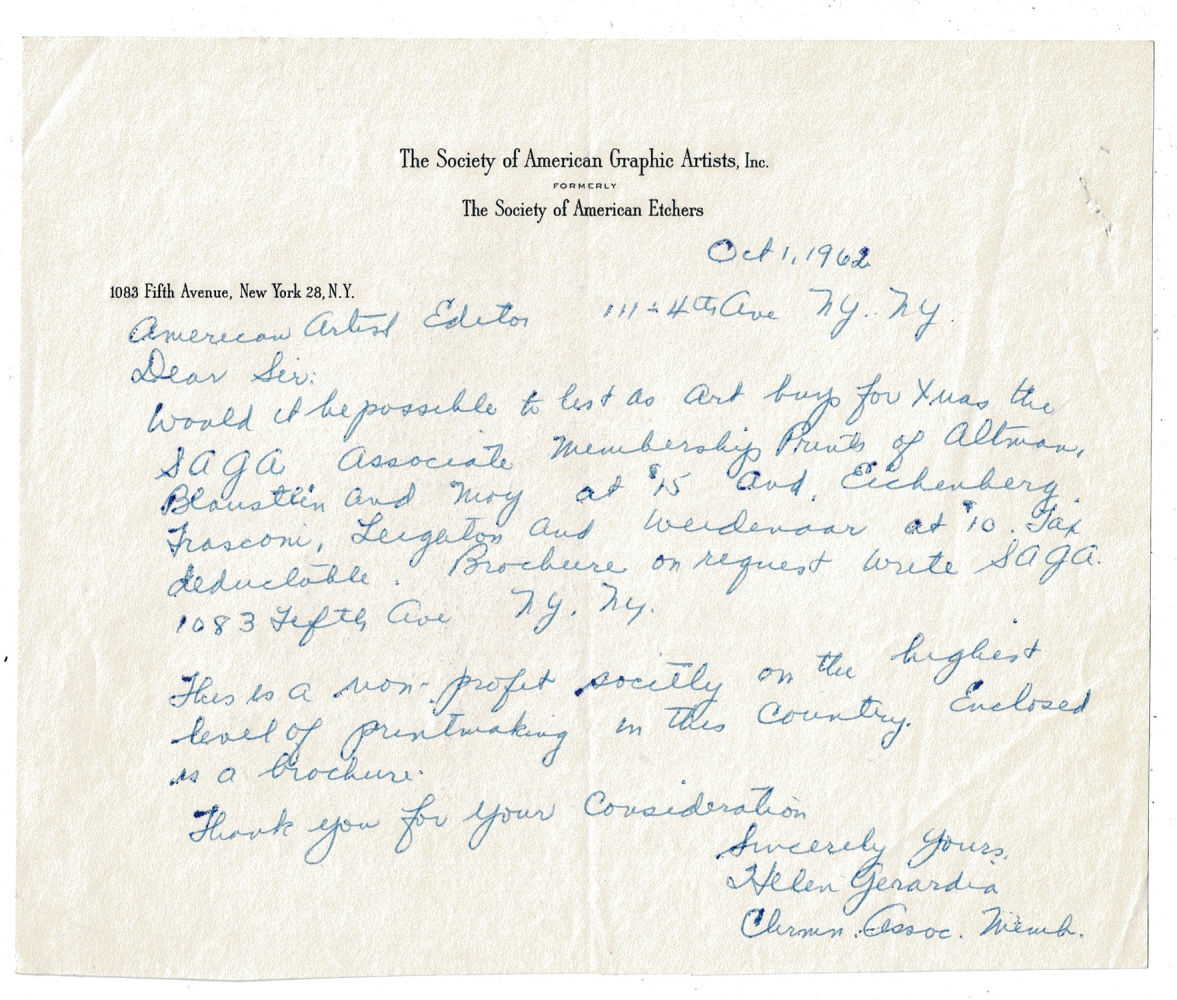 The Society of American Graphic Artists, Inc.
FORMERLY
The Society of American Etchers
Oct 1, 1962
1083 Fifth Avenue, New York 28, N.Y.
American Artist Editor 111-4th Ave NY. NY.
Dear Sir:
Would it be possible to list as art buys for Xmas the
SAGA Associate Membership Prints of Altman,
Blaustein and Moy at $15 and Eichenberg,
Frasconi, Leighton and Weidenaar at $10. Tax
deductable. Brochure on request write SAGA.
1083 Fifth Ave NY. NY.
This is a non-profit society on the highest
level of printmaking in this country. Enclosed
is a brochure.
Thank you for your consideration
Sincerely Yours,
Helen Gerardia
Chrmn. Assoc. Memb.